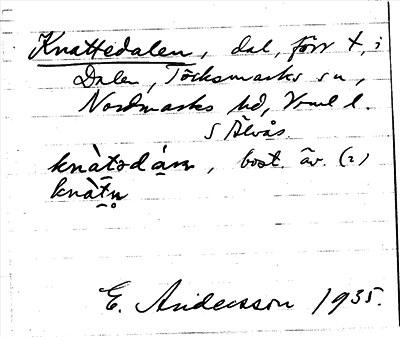 Knattedalen, dal, förr t, i
Dalen, Töcksmarks sn,
Nordmarks hd, Vrml l.
S Älvås.
knàtədám, bost. äv. (2)
knàtn̥
E. Andersson 1935.